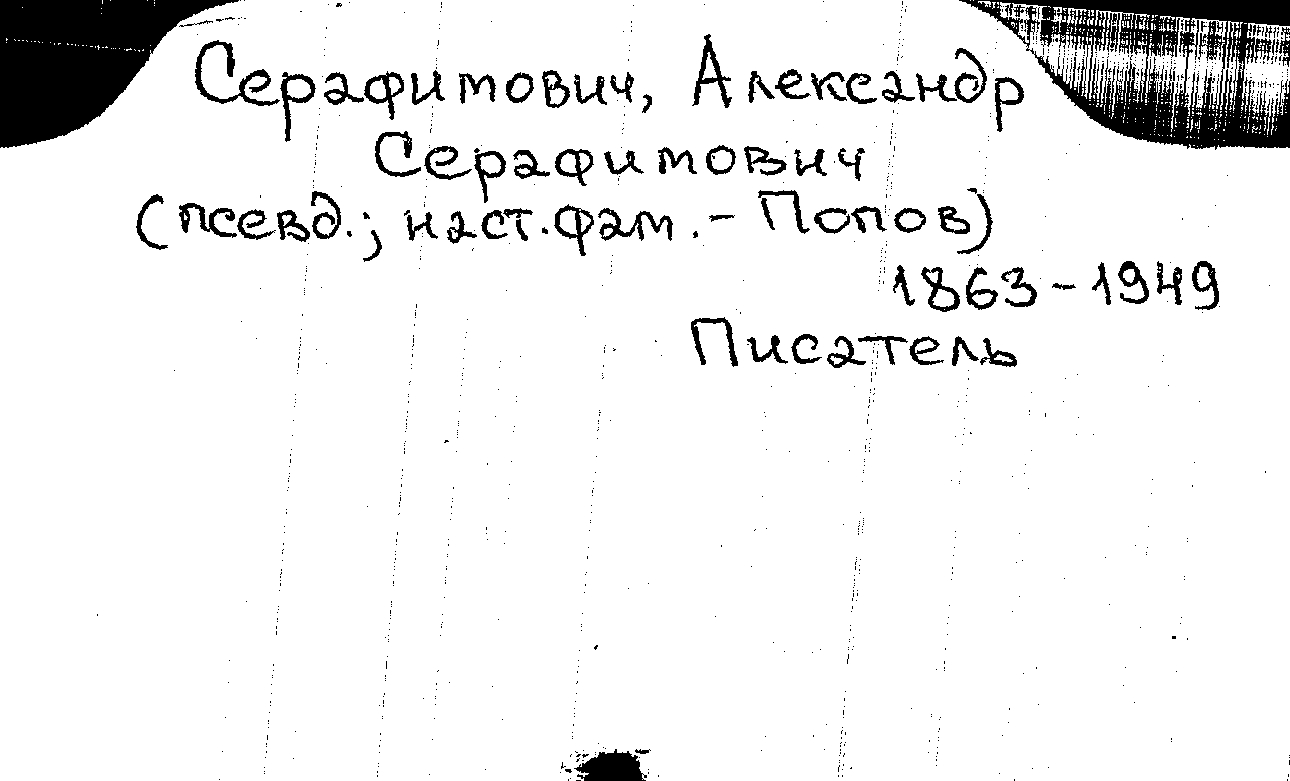 Серафимович, Александр
Серафимович
(псевд.; наст. фам. - Попов)
1863-1949
Писатель